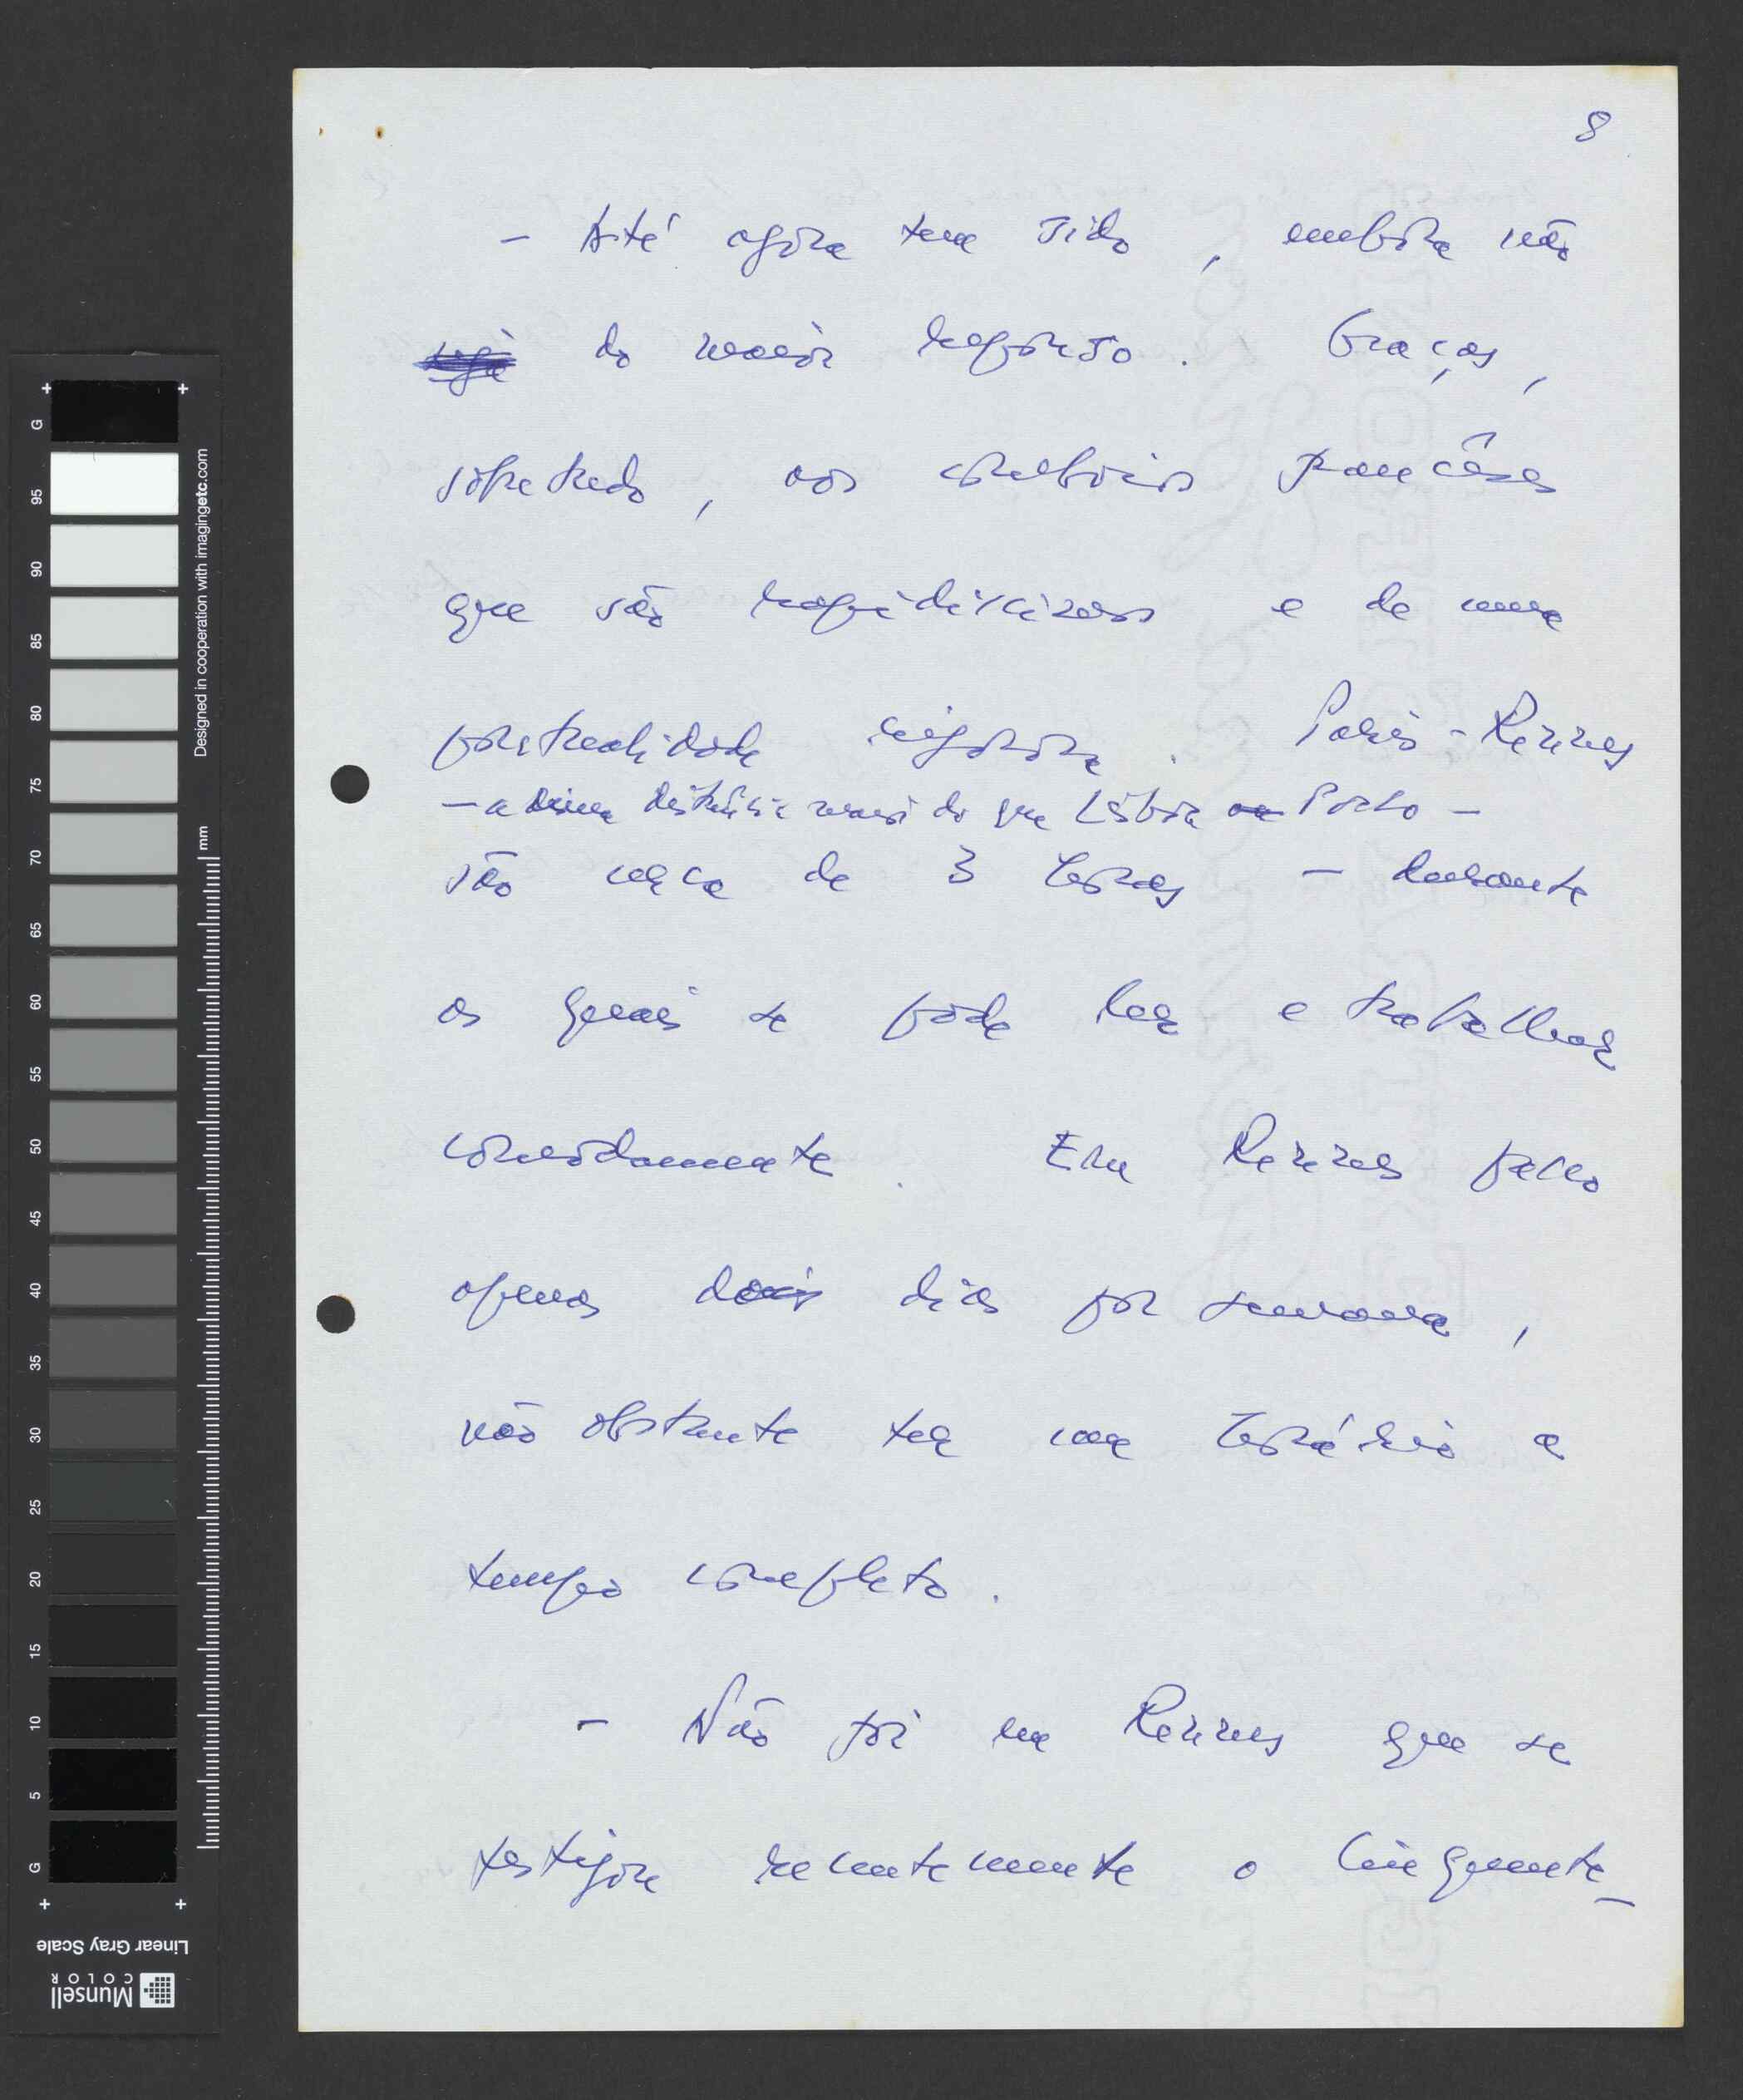 8
- Até agora tem sido, embora não
seja do maior repouso. Graças,
sobretudo, aos comboios franceses
que são rapidíssimos e de uma
pontualidade rigorosa. Paris-Rennes
— a distância maior do que Lisboa Porto —
são cerca de 3 horas — durante
as quais se pode ler e trabalhar
comodamente. Em Rennes passo
apenas dois dias por semana,
não obstante ter um horário a
tempo completo.
- Não foi em Rennes que se
festejou recentemente o cinquente-
G 95 90 85 80 75 70 65 60 55 50 45 40 35 30 25 20 15 10 5 G
Designed in cooperation with imagingetc.com
mm
Linear Gray Scale
Munsell
COLOR